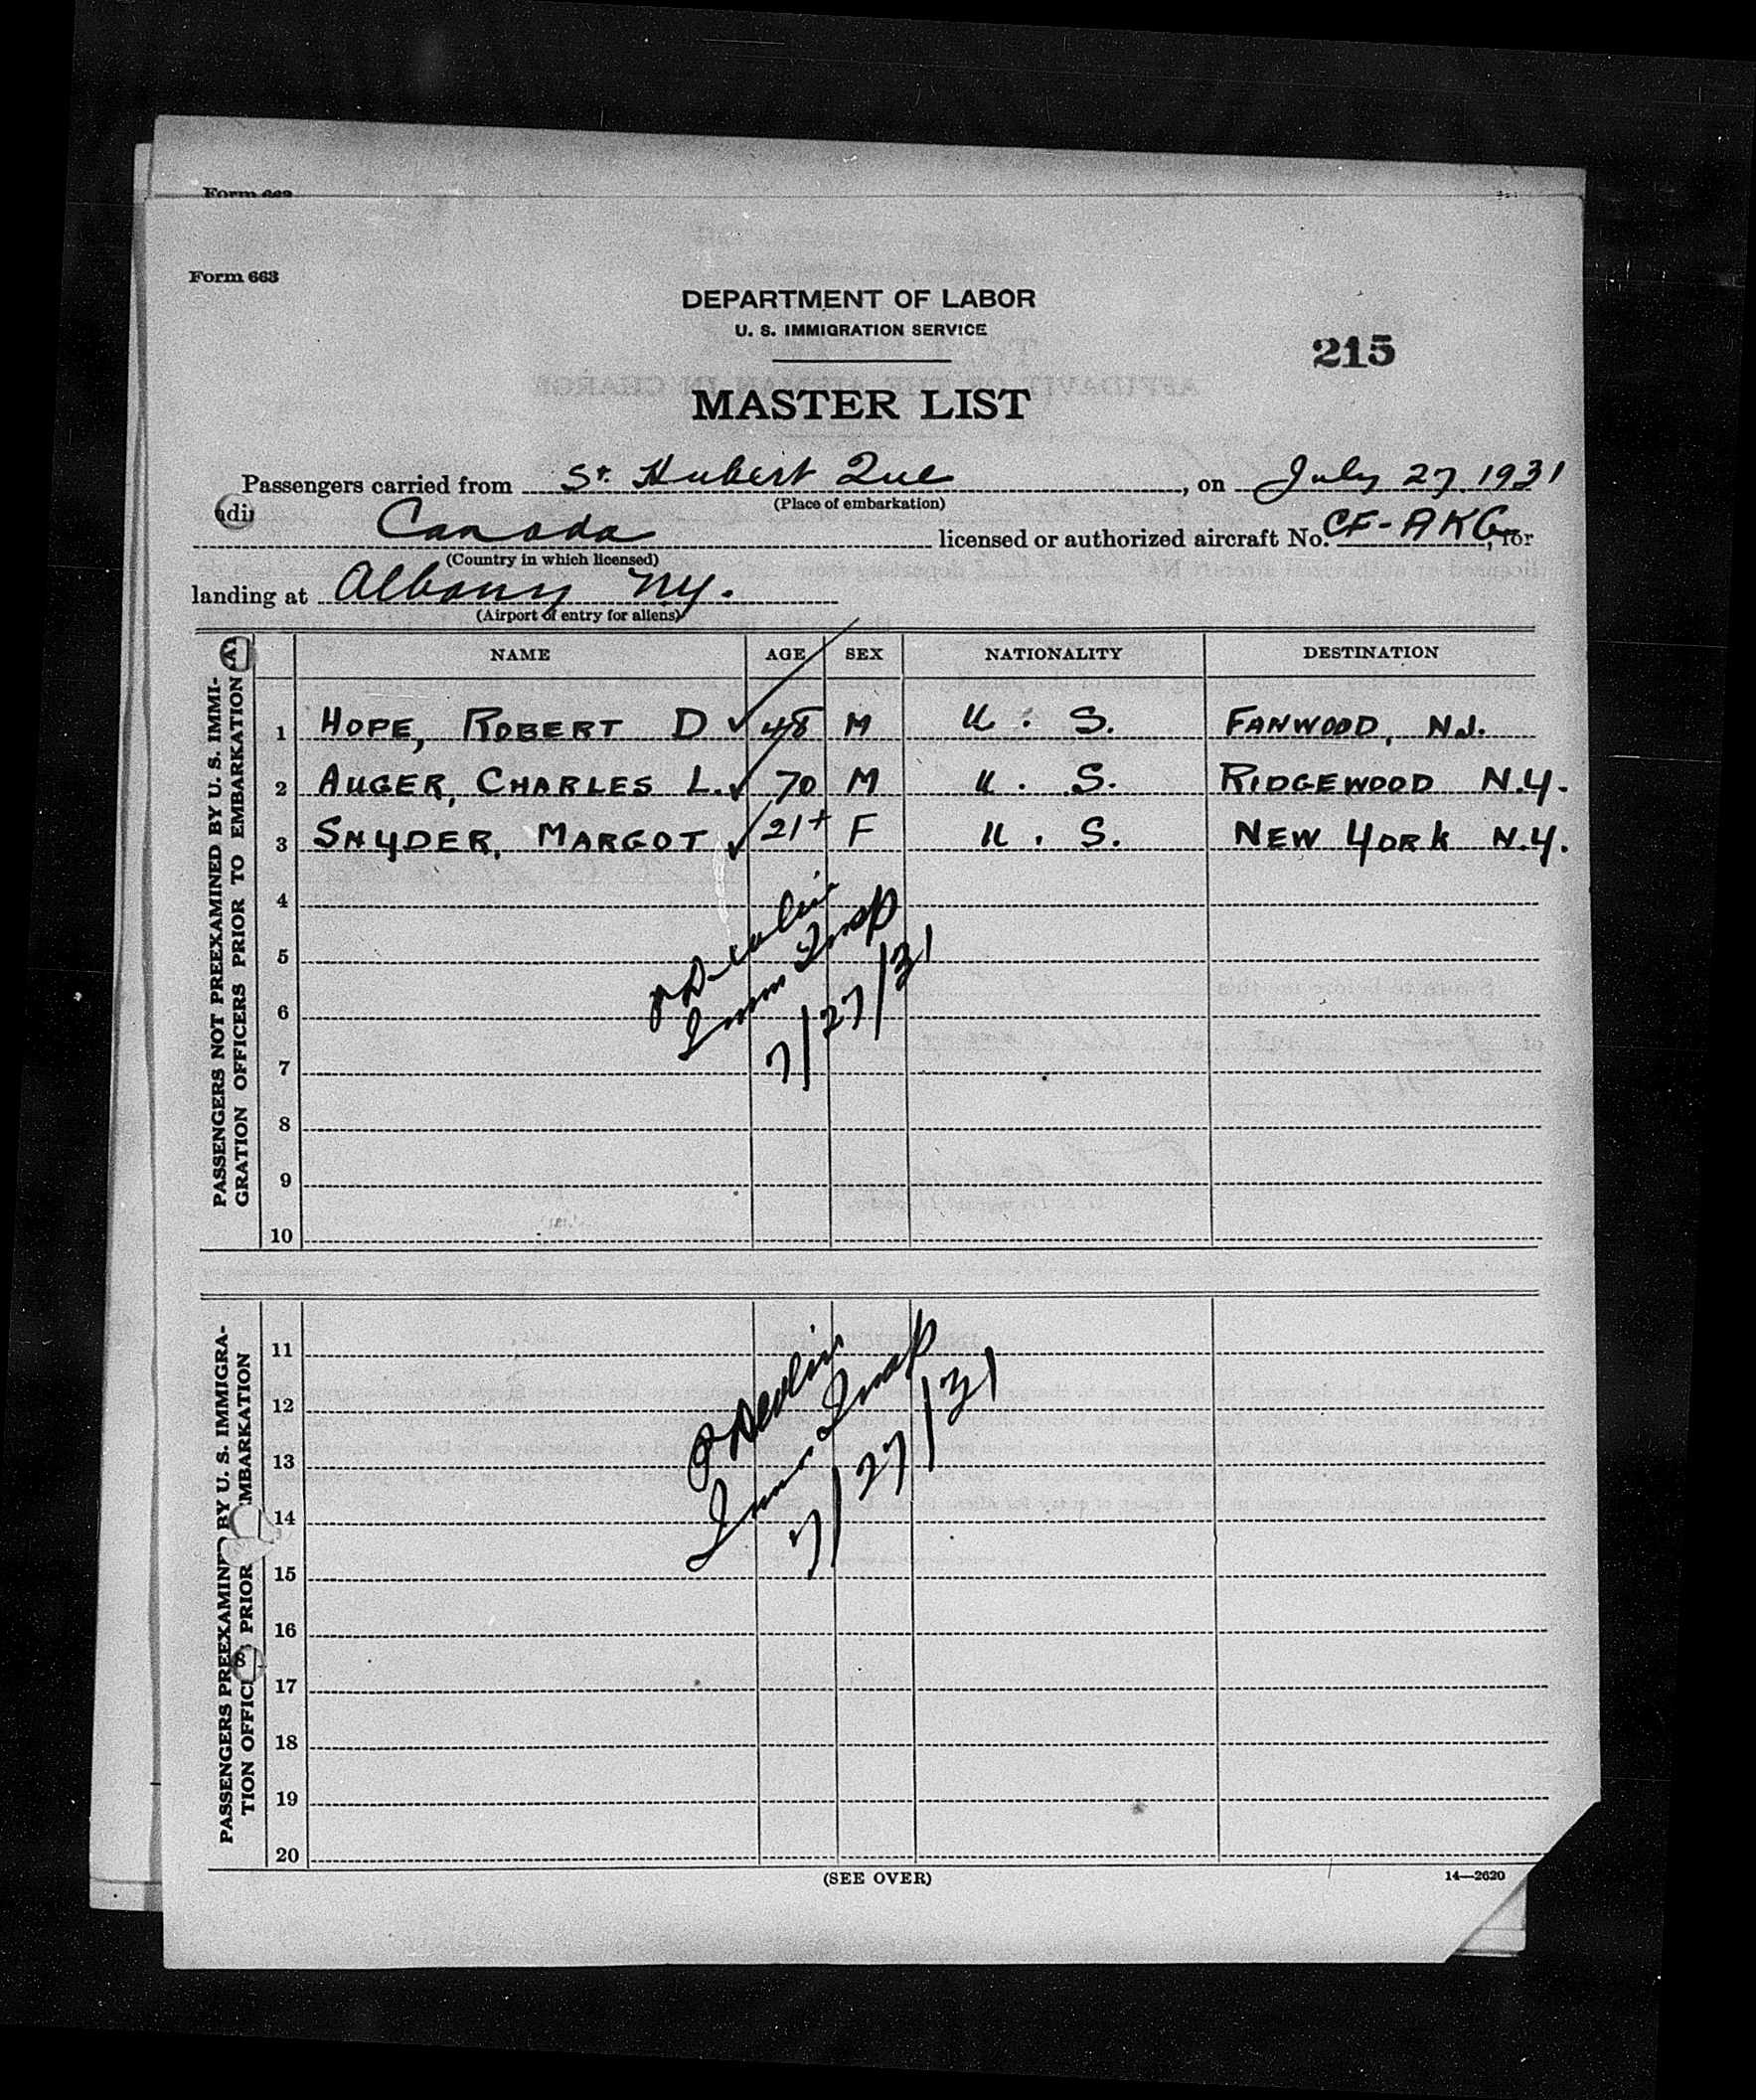 Form 663
DEPARTMENT OF LABOR
U. S. IMMIGRATION SERVICE
215
MASTER LIST
Passengers carried from St. Hubert Que, on July 27, 1931
(Place of embarkation)
Canada licensed or authorized aircraft No. CF-AKG, for
(Country in which licensed)
landing at Albany NY.
(Airport of entry for aliens)
NAME AGE SEX NATIONALITY DESTINATION
PASSENGERS NOT PREEXAMINED BY U. S. IMMI-
GRATION OFFICERS PRIOR TO EMBARKATION
1 HOPE, ROBERT D ✓ 48 M U. S. FANWOOD, N.J.
2 AUGER, CHARLES L. ✓ 70 M U. S. RIDGEWOOD N.Y.
3 SNYDER, MARGOT ✓ 21+ F U. S. NEW YORK N.Y.
4
5
6
7
8
9
10
Devlin
Imm Insp
7/27/31
PASSENGERS PREEXAMINED BY U. S. IMMIGRA-
TION OFFIC PRIOR EMBARKATION
11
12
13
14
15
16
17
18
19
20
Devlin
Imm Insp
7/27/31
(SEE OVER)
14—2620